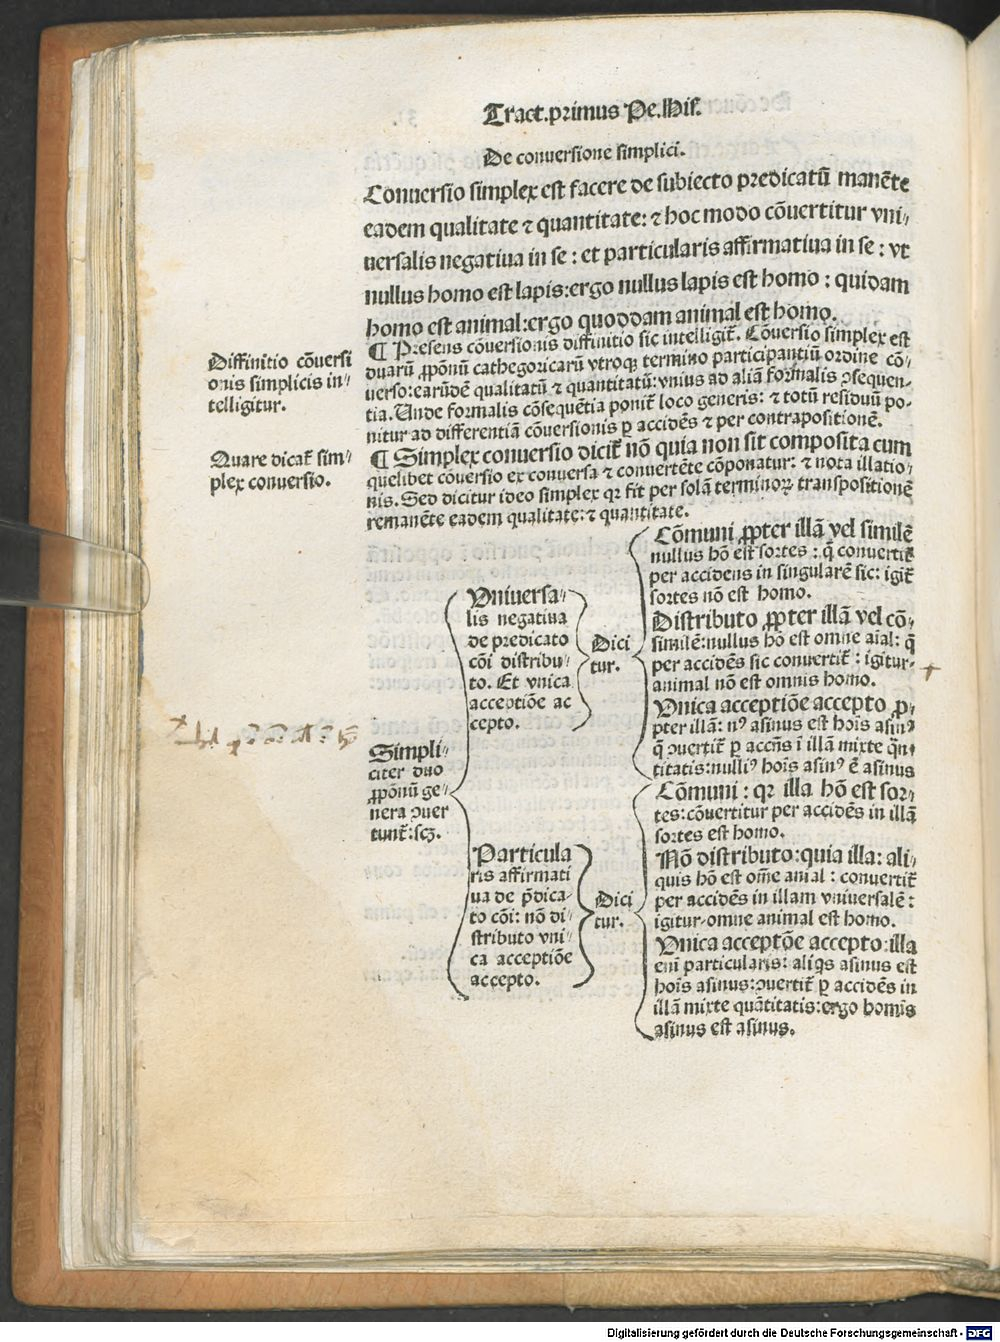 Tract.primus Pe.His.
De conuersione simplici.
Conuersio simplex est facere de subiecto predicatū manēte
eadem qualitate ⁊ quantitate: ⁊ hoc modo cōuertitur vni⸗
uersalis negatiua in se : et particularis affirmatiua in se : vt
nullus homo est lapis:ergo nullus lapis est homo : quidam
homo est animal:ergo quoddam animal est homo.
¶ Presens cōuersionis diffinitio sic intelligit̄. Cōuersio simplex est
duarū ꝓpōnū cathegoricarū vtroqꝫ termino participantiū ordine cō⸗
uerso:earūdē qualitatū ⁊ quantitatū:vnius ad aliā formalis ɔsequen⸗
tia. Unde formalis cōsequētia ponit̄ loco generis: ⁊ totū residuū po⸗
nitur ad differentiā cōuersionis ꝑ accidēs ⁊ per contrapositionē.
Diffinitio cōuersi
onis simplicis in⸗
telligitur.
¶ Simplex conuersio dicit̄ nō quia non sit composita cum
quelibet cōuersio ex conuersa ⁊ conuertēte cōponatur: ⁊ nota illatio⸗
nis. Sed dicitur ideo simplex qꝛ fit per solā terminoꝝ transpositionē
remanēte eadem qualitate:⁊ quantitate.
Quare dicat̄ sim⸗
plex conuersio.
Simpli⸗
citer duo
ꝓpōnū ge⸗
nera ɔuer
tunt̄:scꝫ.
Vniuersa⸗
lis negatiua
de predicato
cōi distribu⸗
to. Et vnica
acceptiōe ac
cepto.
Dici
tur.
Cōmuni ꝓpter illā vel similē
nullus hō est sortes : q̄ conuertit̄
per accidens in singularē sic: igit̄
sortes nō est homo.
Distributo ꝓpter illā vel cō⸗
similē:nullus hō est omne aīal: q̄
per accidēs sic conuertit̄ : igitur
animal nō est omnis homo.
Vnica acceptiōe accepto ꝓ⸗
pter illā: nꝰ asinus est hoīs asinꝰ
q̄ ɔuertit̄ ꝑ accn̄s ī illā mixte qn̄⸗
titatis:nulliꝰ hoīs asinꝰ ē asinus
Particula
ris affirmati
ua de p̄dica⸗
to cōi: nō di⸗
stributo vni⸗
ca acceptiōe
accepto.
Dici
tur.
Cōmuni : qꝛ illa hō est sor⸗
tes:cōuertitur per accidēs in illā
sortes est homo.
Nō distributo:quia illa: ali⸗
quis hō est om̄e anial : conuertit̄
per accidēs in illam vniuersalē :
igitur omne animal est homo.
Vnica acceptōe accepto:illa
eni particularis: aliqs asinus est
hoīs asinus:ɔuertit̄ ꝑ accidēs in
illā mixte quātitatis:ergo homīs
asinus est asinus.
Digitalisierung gefördert durch die Deutsche Forschungsgemeinschaft - DFG